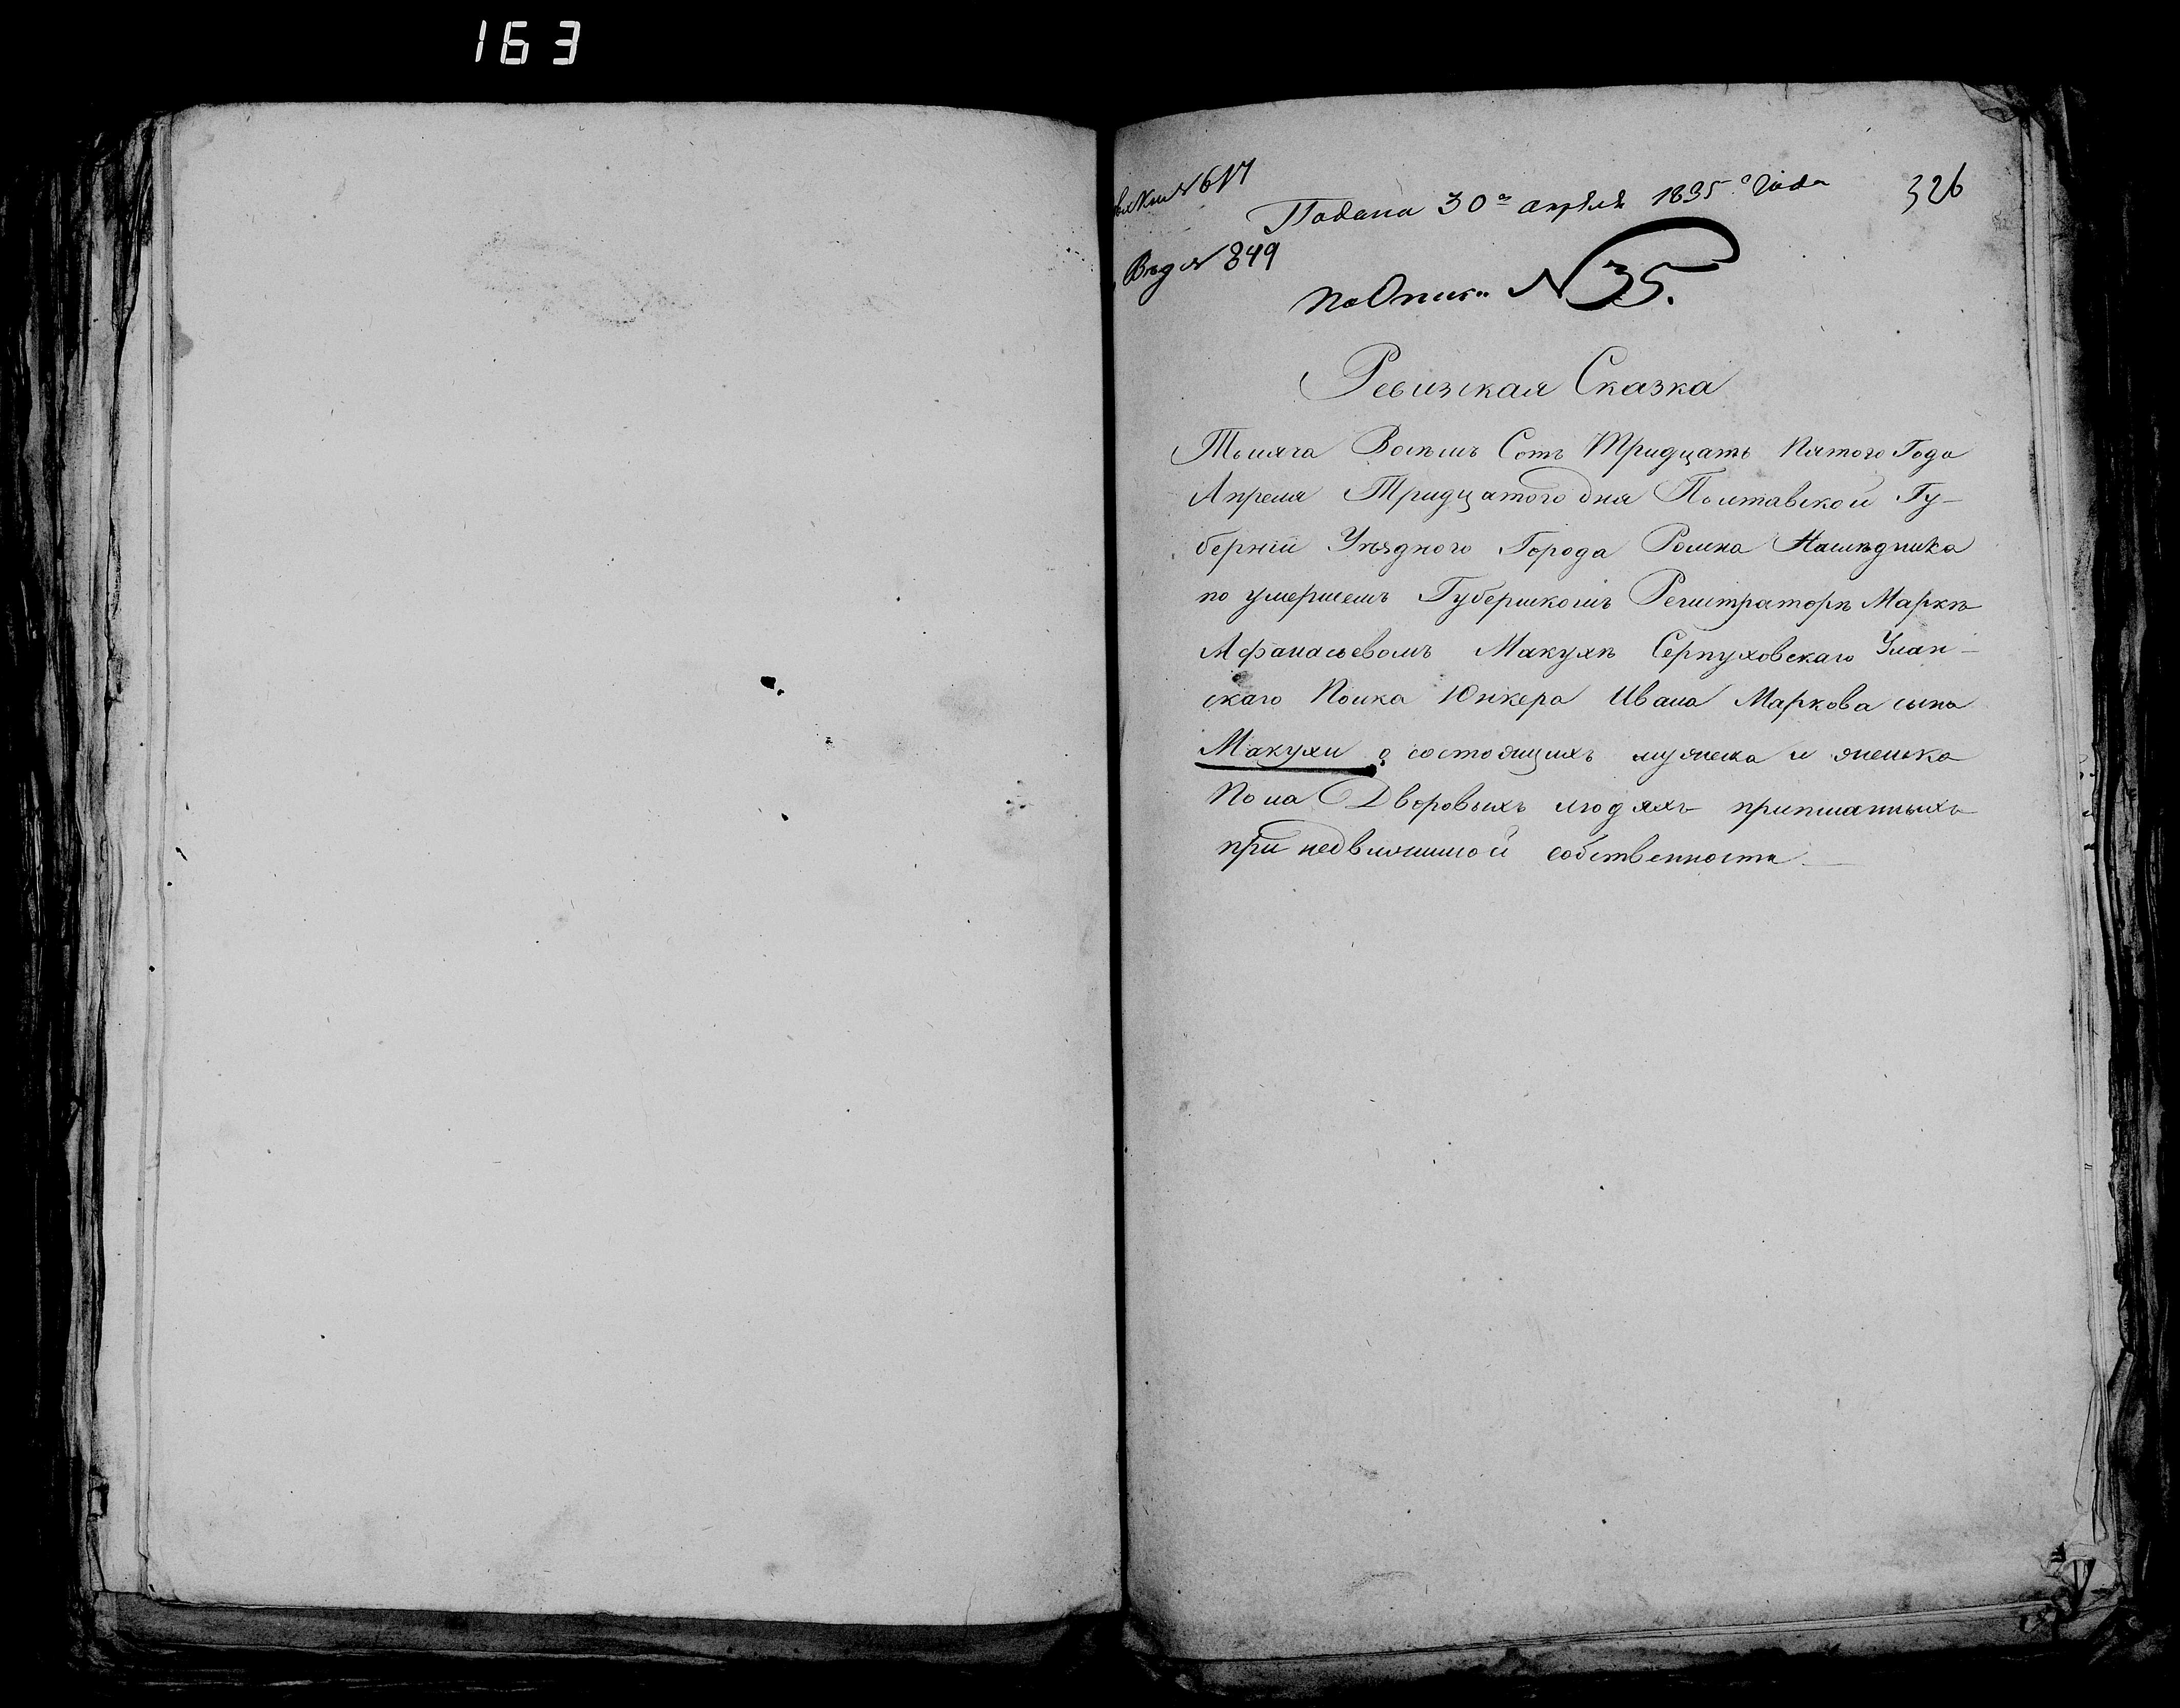 163
№ 617
Подана 30го апреля 1835го Года
326
Вед № 849
По Описи № 35.
Ревизская Сказка
Тысяча Восемь Сотъ Тридцать Пятого Года
Апреля Тридцатого дня Полтавской Гу-
берніи Уѣздного Города Ромна Наследника
по умершемъ Губернскомъ Регистраторѣ Маркѣ
Афанасьевомъ Макухѣ Серпуховскаго Улан-
скаго Полка Юнкера Ивана Маркова сына
Макухи о состоящихъ мужеска и женска
Пола Дворовыхъ людяхъ приписанныхъ
при недвижимой собственности